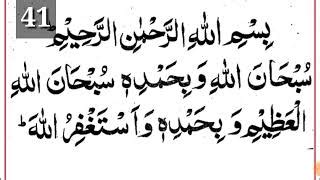 41
بِسْمِ اللهِ الرَّحْمٰنِ الرَّحِيْمِ
سُبْحَانَ اللهِ وَبِحَمْدِهٖ سُبْحَانَ اللهِ
الْعَظِيْمِ وَبِحَمْدِهٖ وَاَسْتَغْفِرُ اللهَ ؕ